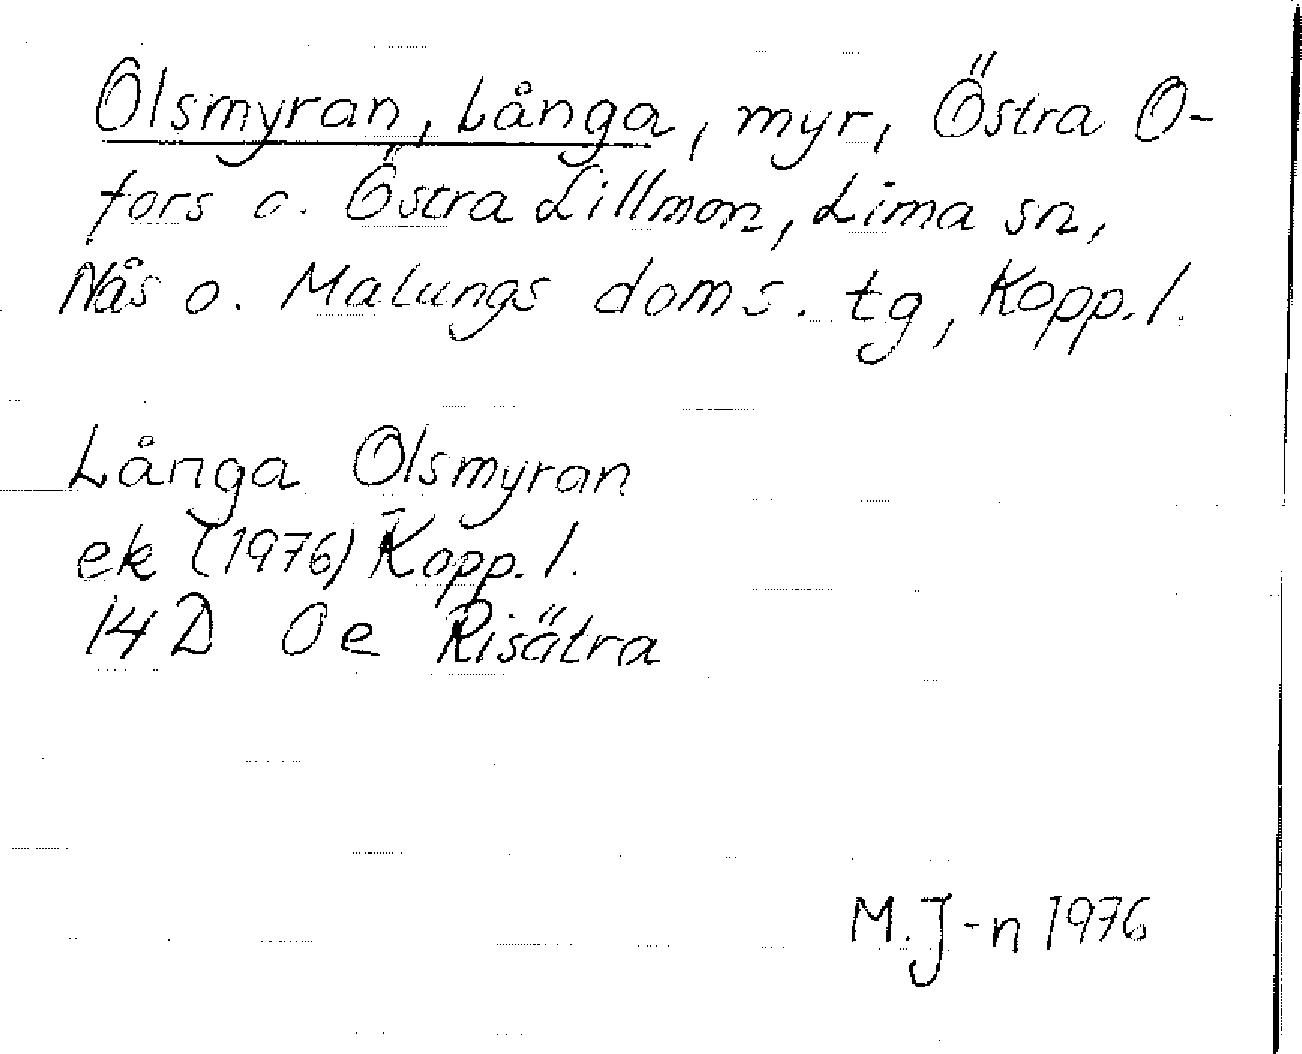 Olsmyran, Långa, myr, Östra O-
fors o. Östra Lillmon, Lima sn,
Nås o. Malungs doms. tg, Kopp. l.
Långa Olsmyran
ek (1976) Kopp. l.
14 D 0 e Risätra
M. J-n 1976